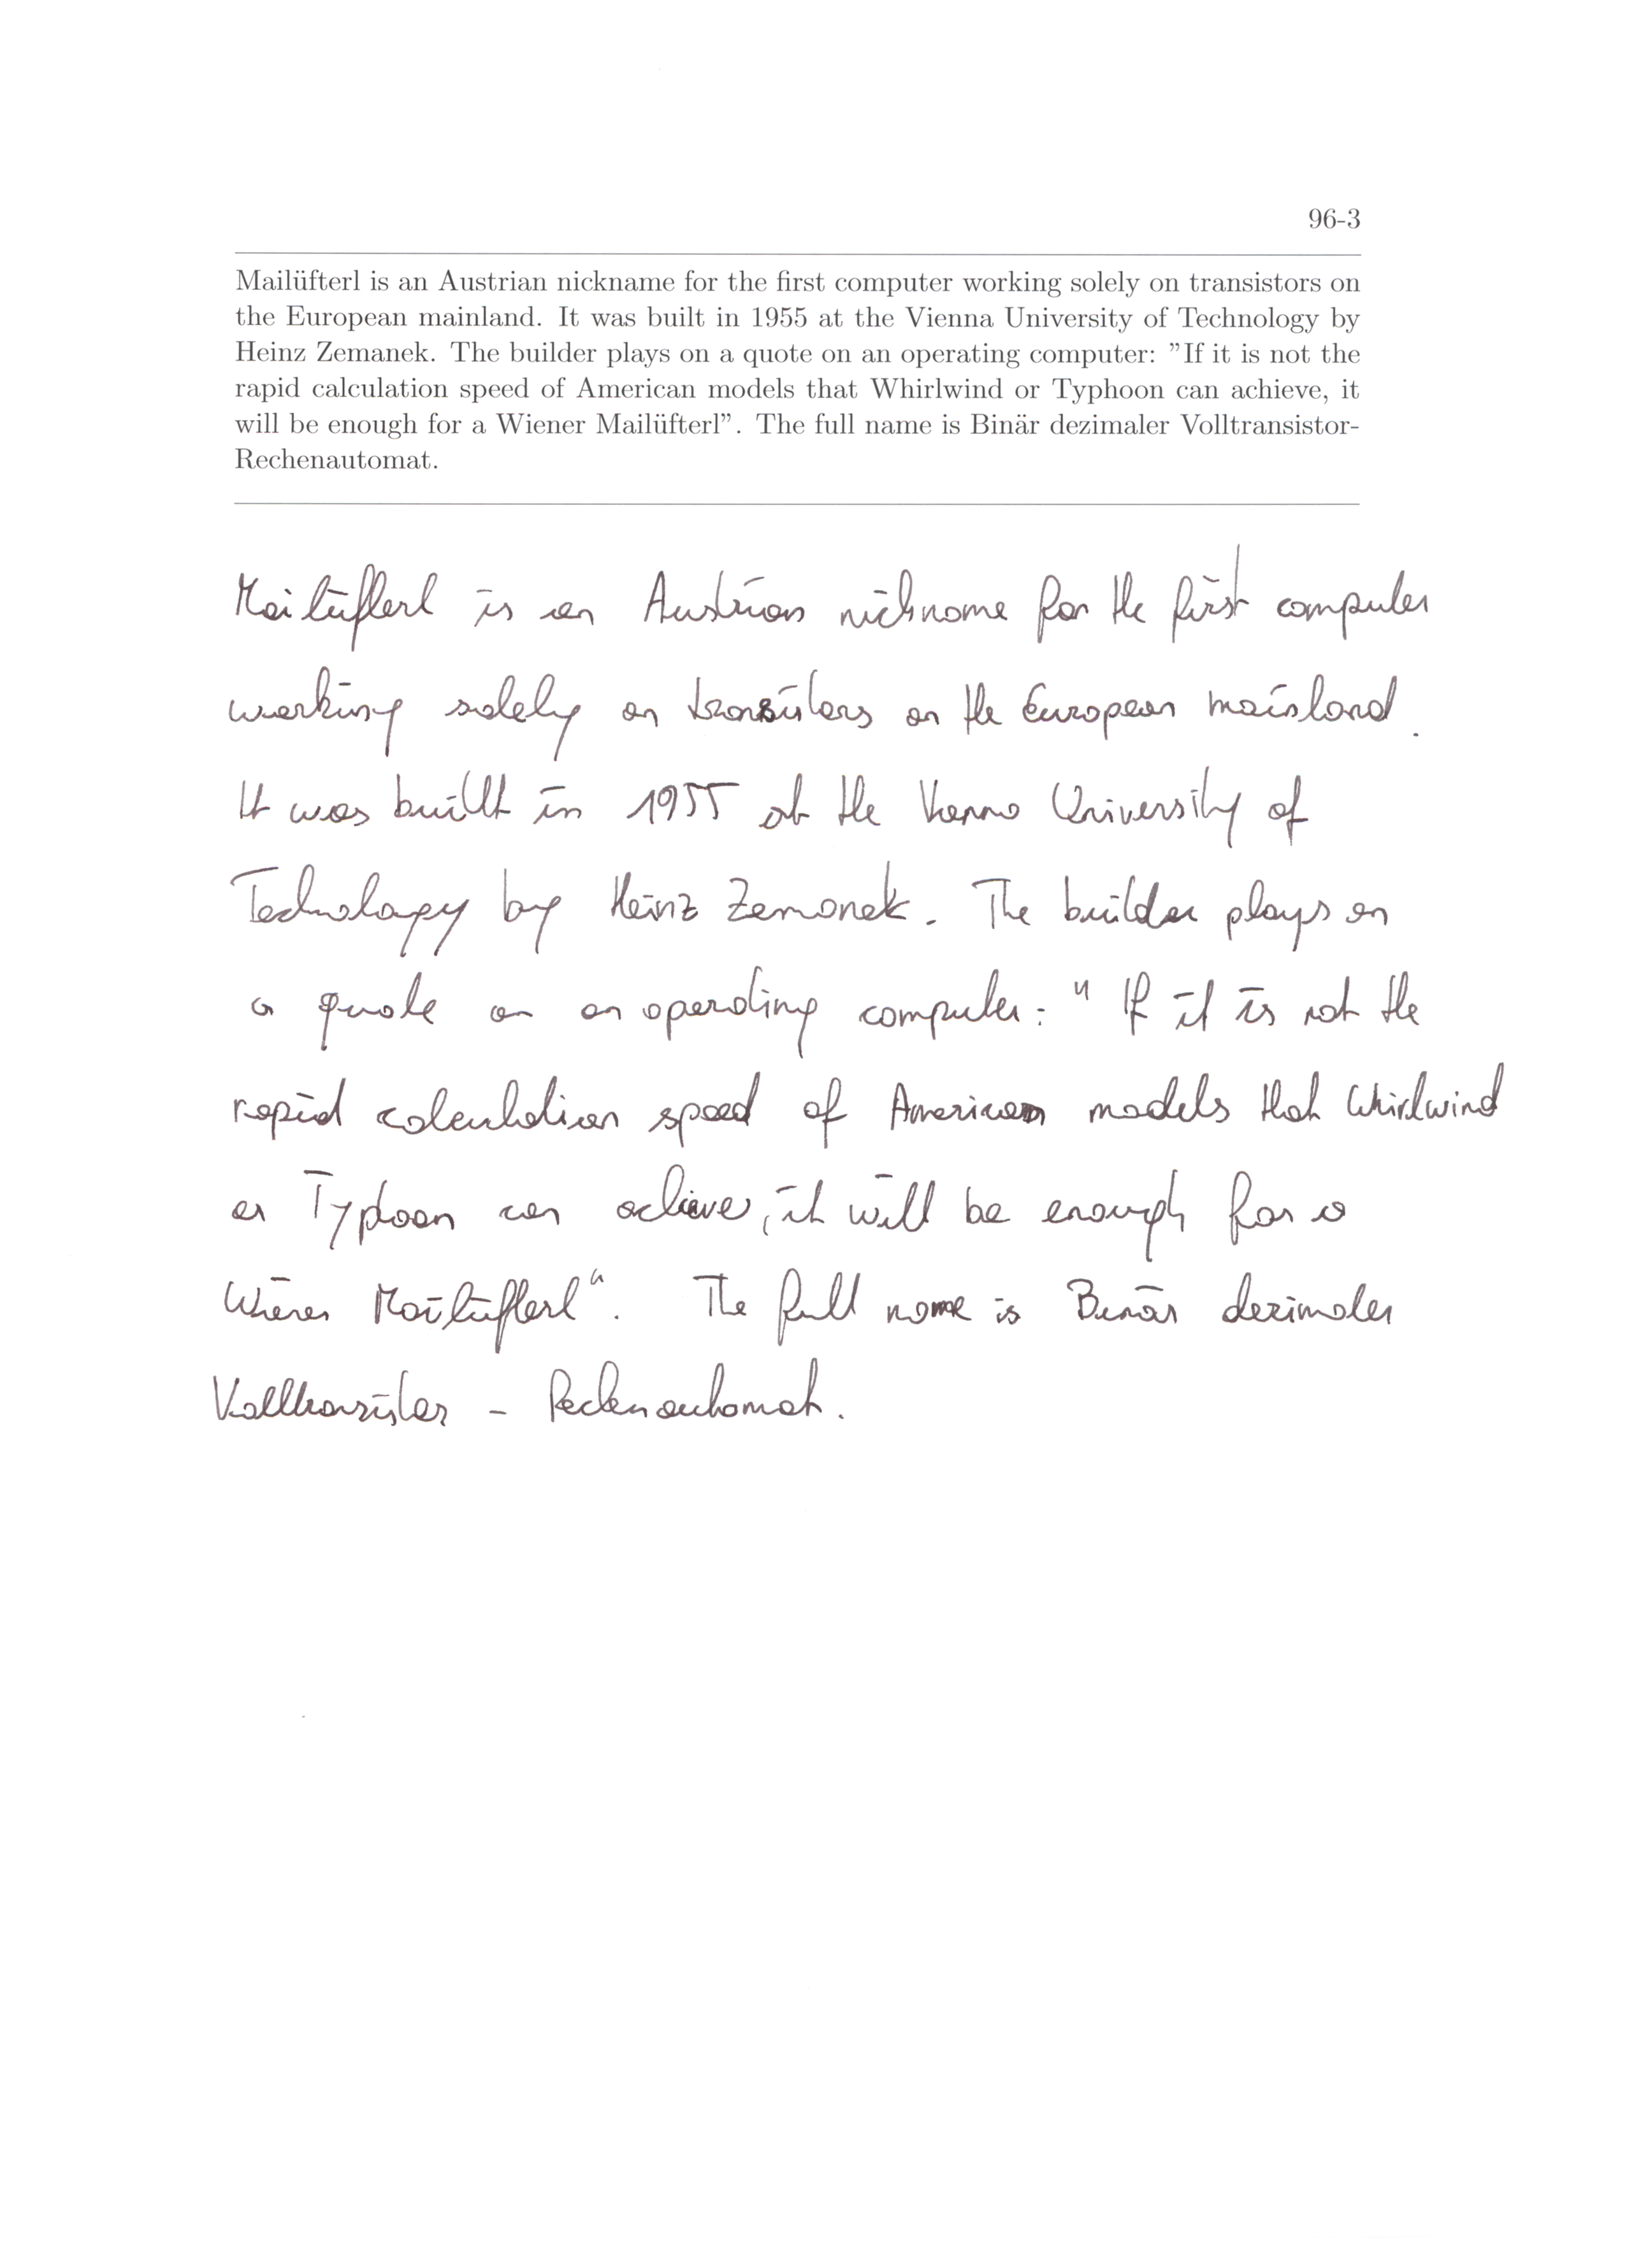 96-3
Mailüfterl is an Austrian nickname for the first computer working solely on transistors on
the European mainland. It was built in 1955 at the Vienna University of Technology by
Heinz Zemanek. The builder plays on a quote on an operating computer: ”If it is not the
rapid calculation speed of American models that Whirlwind or Typhoon can achieve, it
will be enough for a Wiener Mailüfterl”. The full name is Binär dezimaler Volltransistor-
Rechenautomat.
Mailüfterl is an Austrian nickname for the first computer
working solely on transistors on the European mainland.
It was built in 1955 at the Vienna University of
Technology by Heinz Zemanek. The builder plays on
a quote on an operating computer: "If it is not the
rapid calculation speed of American models that Whirlwind
or Typhoon can achieve, it will be enough for a
Wiener Mailüfterl". The full name is Binär dezimaler
Volltransistor - Rechenautomat.